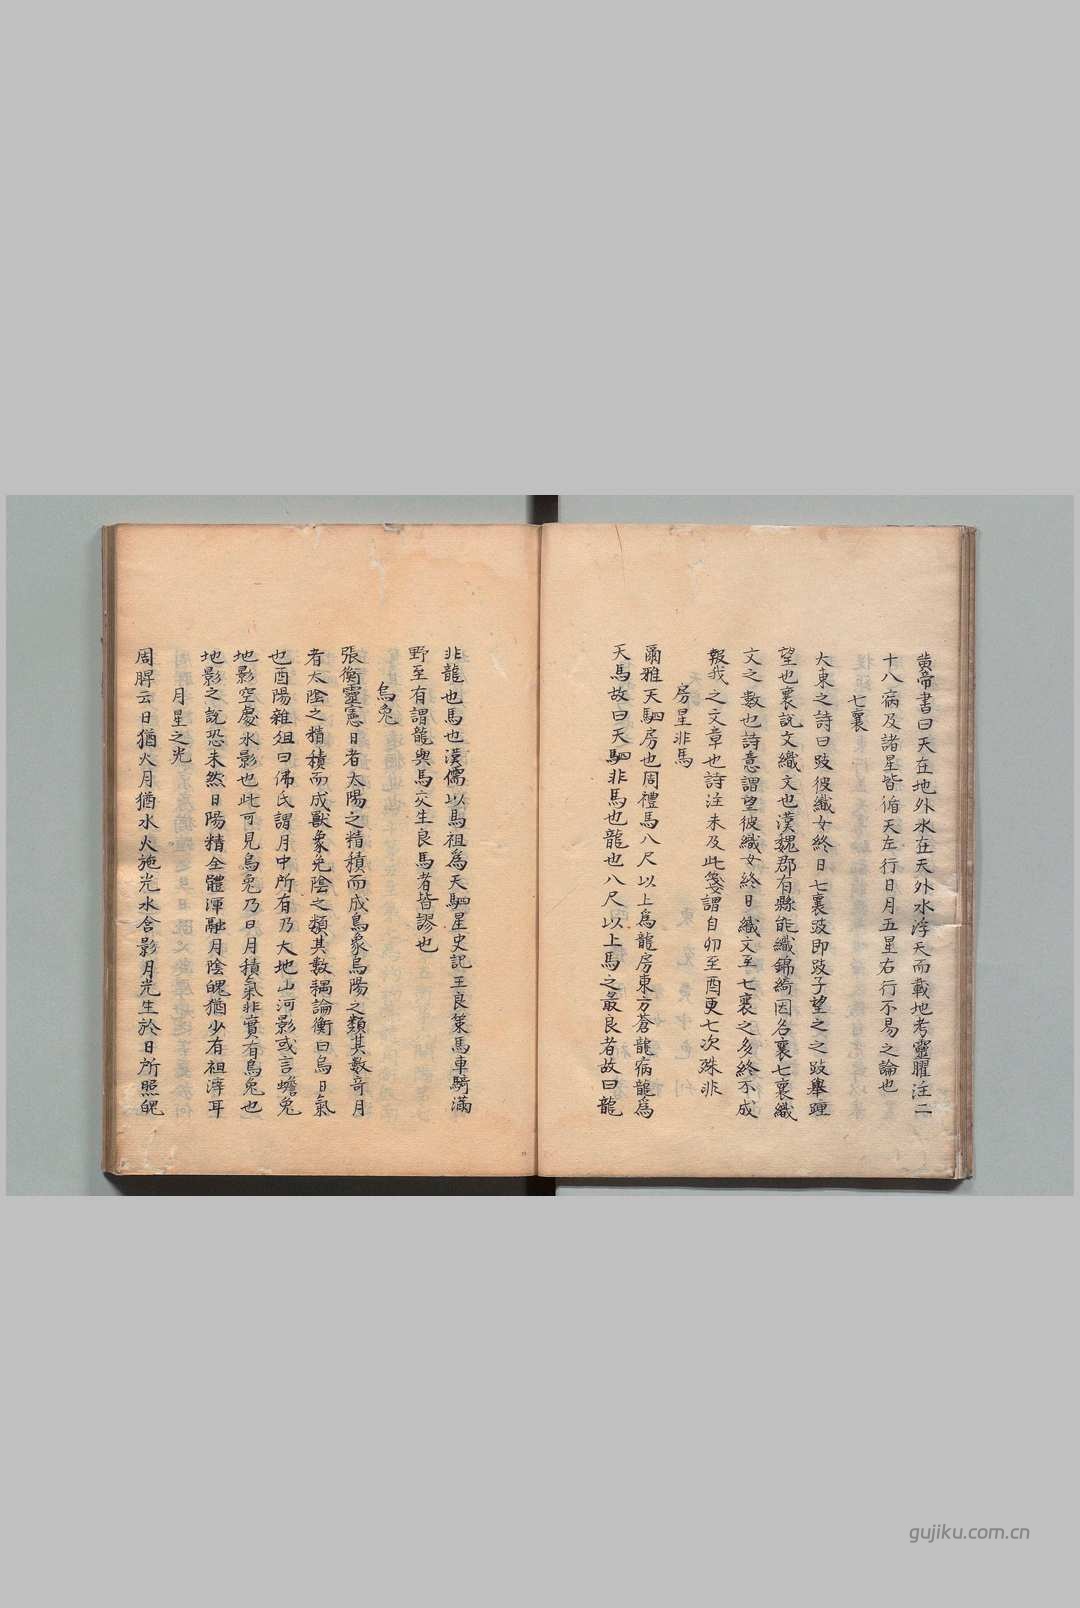 黄帝書曰天在地外水在天外水浮天而載地考靈曜注二
十八病及諸星皆循天左行日月五星右行不易之論也
七襄
大東之詩曰跂彼織女終日七襄跂即跂予望之之跂舉踵
望也襄說文織文也漢魏郡有縣能織錦綺因名襄七襄織
文之數也詩意謂望彼織女終日織文至七襄之多終不成
報我之文章也詩注未及此箋謂自卯至酉更七次殊非
房星非馬
爾雅天駟房也周禮馬八尺以上為龍房東方蒼龍病龍為
天馬故曰天駟非馬也龍也八尺以上馬之最良者故曰龍
非龍也馬也漢儒以馬祖為天駟星史記王良策馬車騎滿
野至有謂龍與馬交生良馬者皆謬也
烏兔
張衡靈憲日者太陽之精積而成烏象烏陽之類其數奇月
者太陰之精積而成獸象兔陰之類其數耦論衡曰烏日氣
也酉陽雜俎曰佛氏謂月中所有乃大地山河影或言蟾兔
地影空處水影也此可見烏兔乃日月積氣非實有烏兔也
地影之說恐未然日陽精全體渾融月陰魄猶少有祖滓耳
月星之光
周髀云日猶火月猶水火施光水含影月光生於日所照魄
gujiku.com.cn